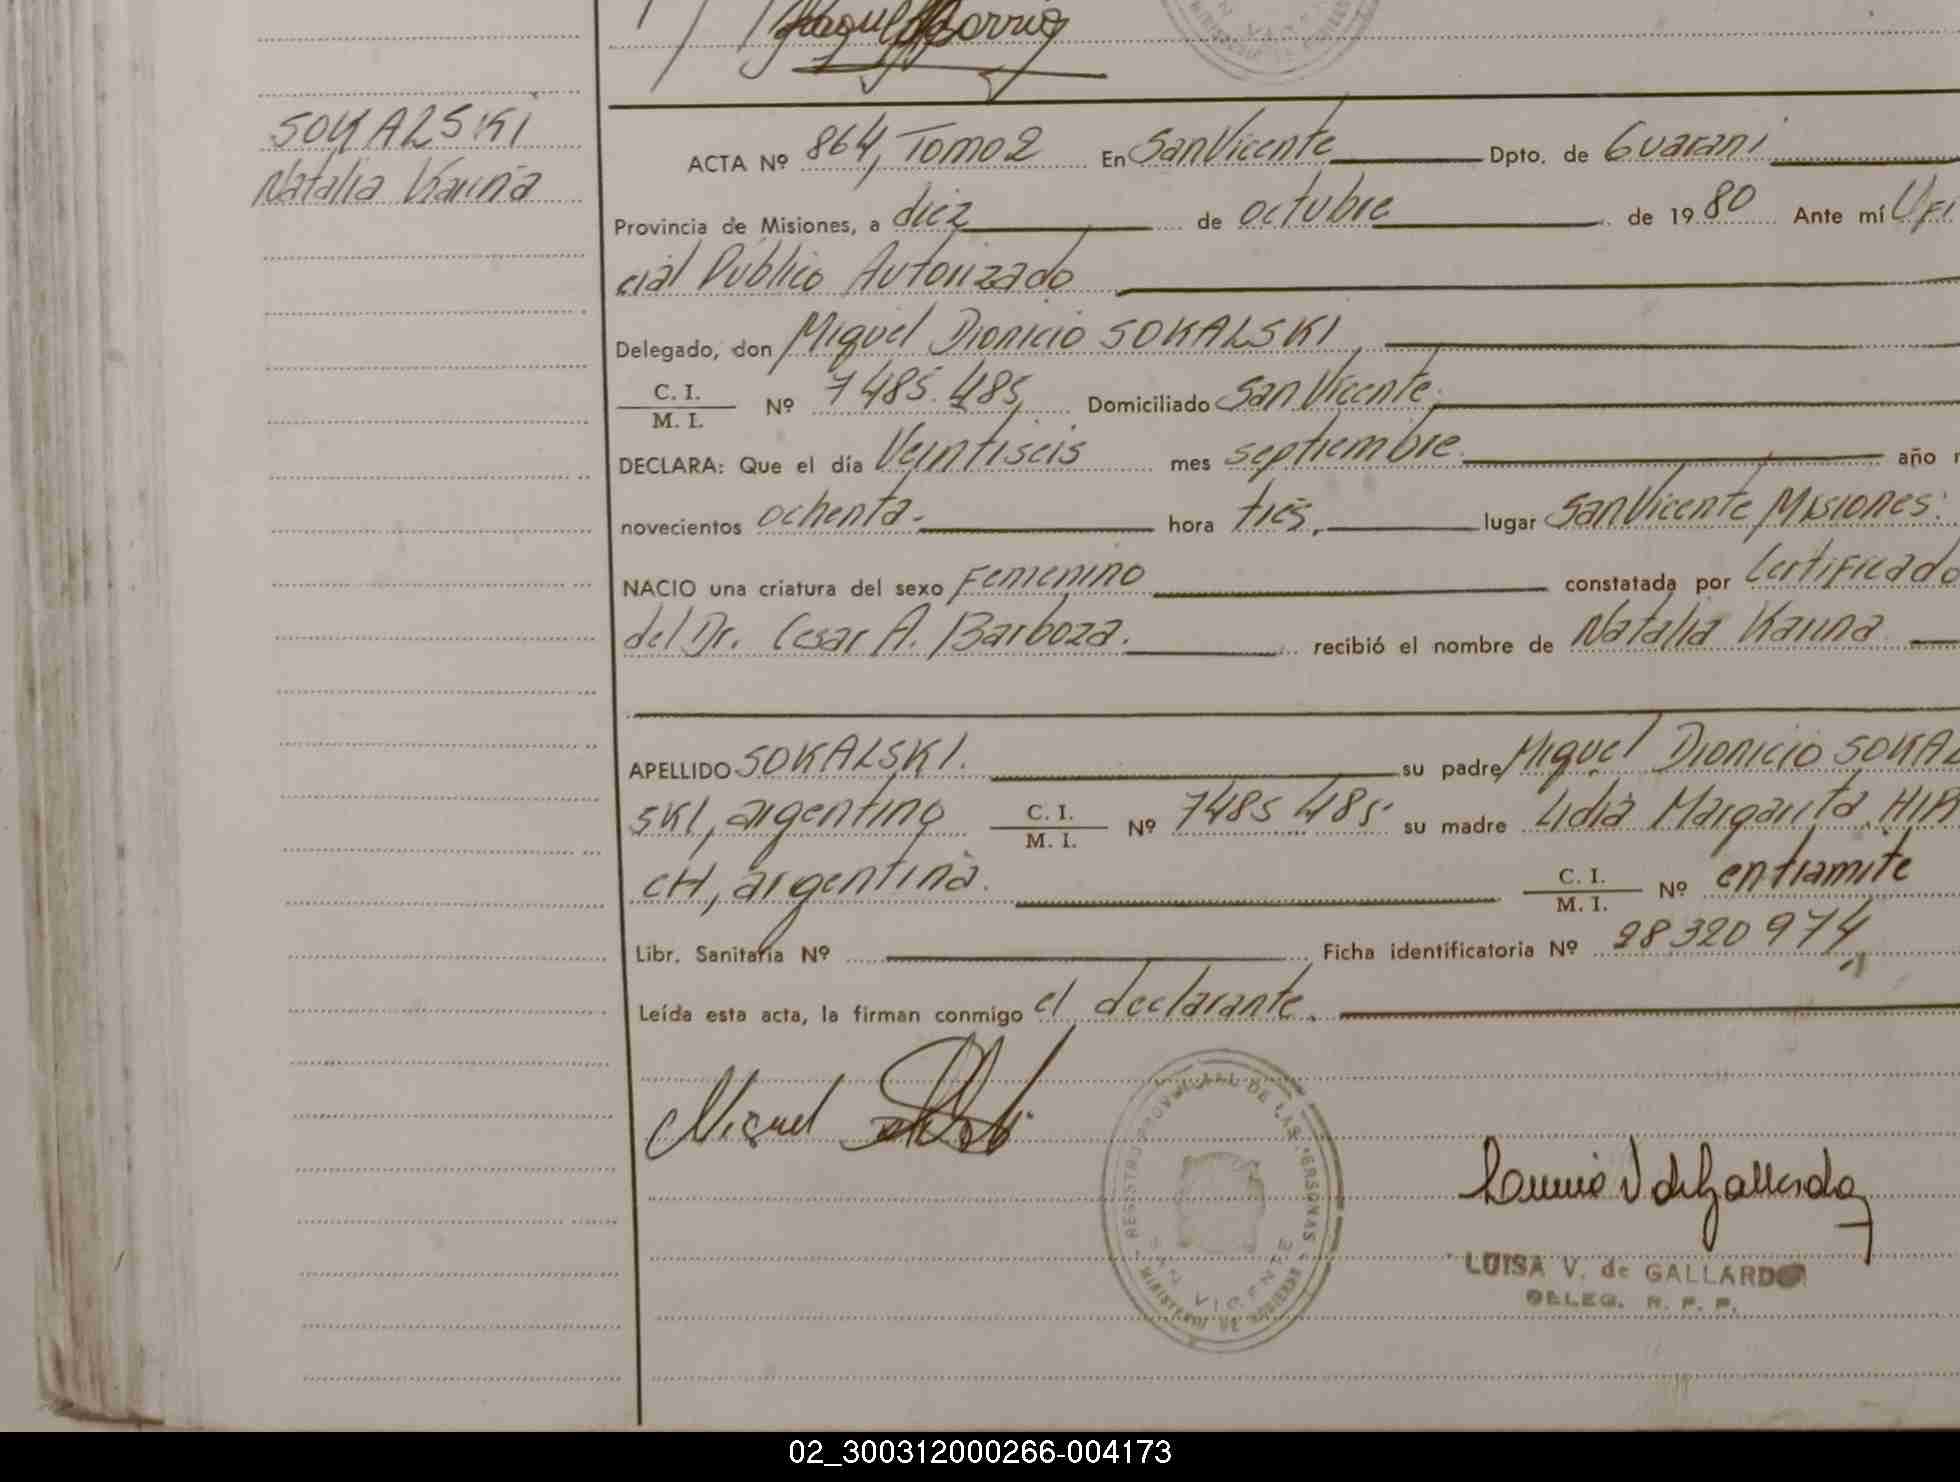 SOKALSKI
Natalia Karina
ACTA Nº 864, Tomo 2 En San Vicente Dpto. de Guarani
Provincia de Misiones, a diez de octubre de 1980 Ante mí Ofi
cial Publico Autorizado
Delegado, don Miguel Dionicio SOKALSKI,
C. I.
M. I.
Nº 7485.485, Domiciliado San Vicente.
DECLARA: Que el día Veintiseis mes septiembre. año
novecientos ochenta. hora tres, lugar San Vicente Misiones.
NACIO una criatura del sexo Femenino constatada por Certificado
del Dr. Cesar A. Barboza. recibió el nombre de Natalia Karina
APELLIDO SOKALSKI. su padre Miguel Dionicio SOKAL
SKI, argentino C. I. M. I. Nº 7485 485. su madre Lidia Margarita
CH, argentina. C. I. M. I. Nº entramite
Libr. Sanitaria Nº Ficha identificatoria Nº 28320974
Leída esta acta, la firman conmigo el declarante.
Miguel
REGISTRO PROVINCIAL DE LAS PERSONAS
SAN VICENTE
MINISTERIO DE GOBIERNO
LUISA V. de GALLARDO
DELEG. R. P. P.
02_300312000266-004173